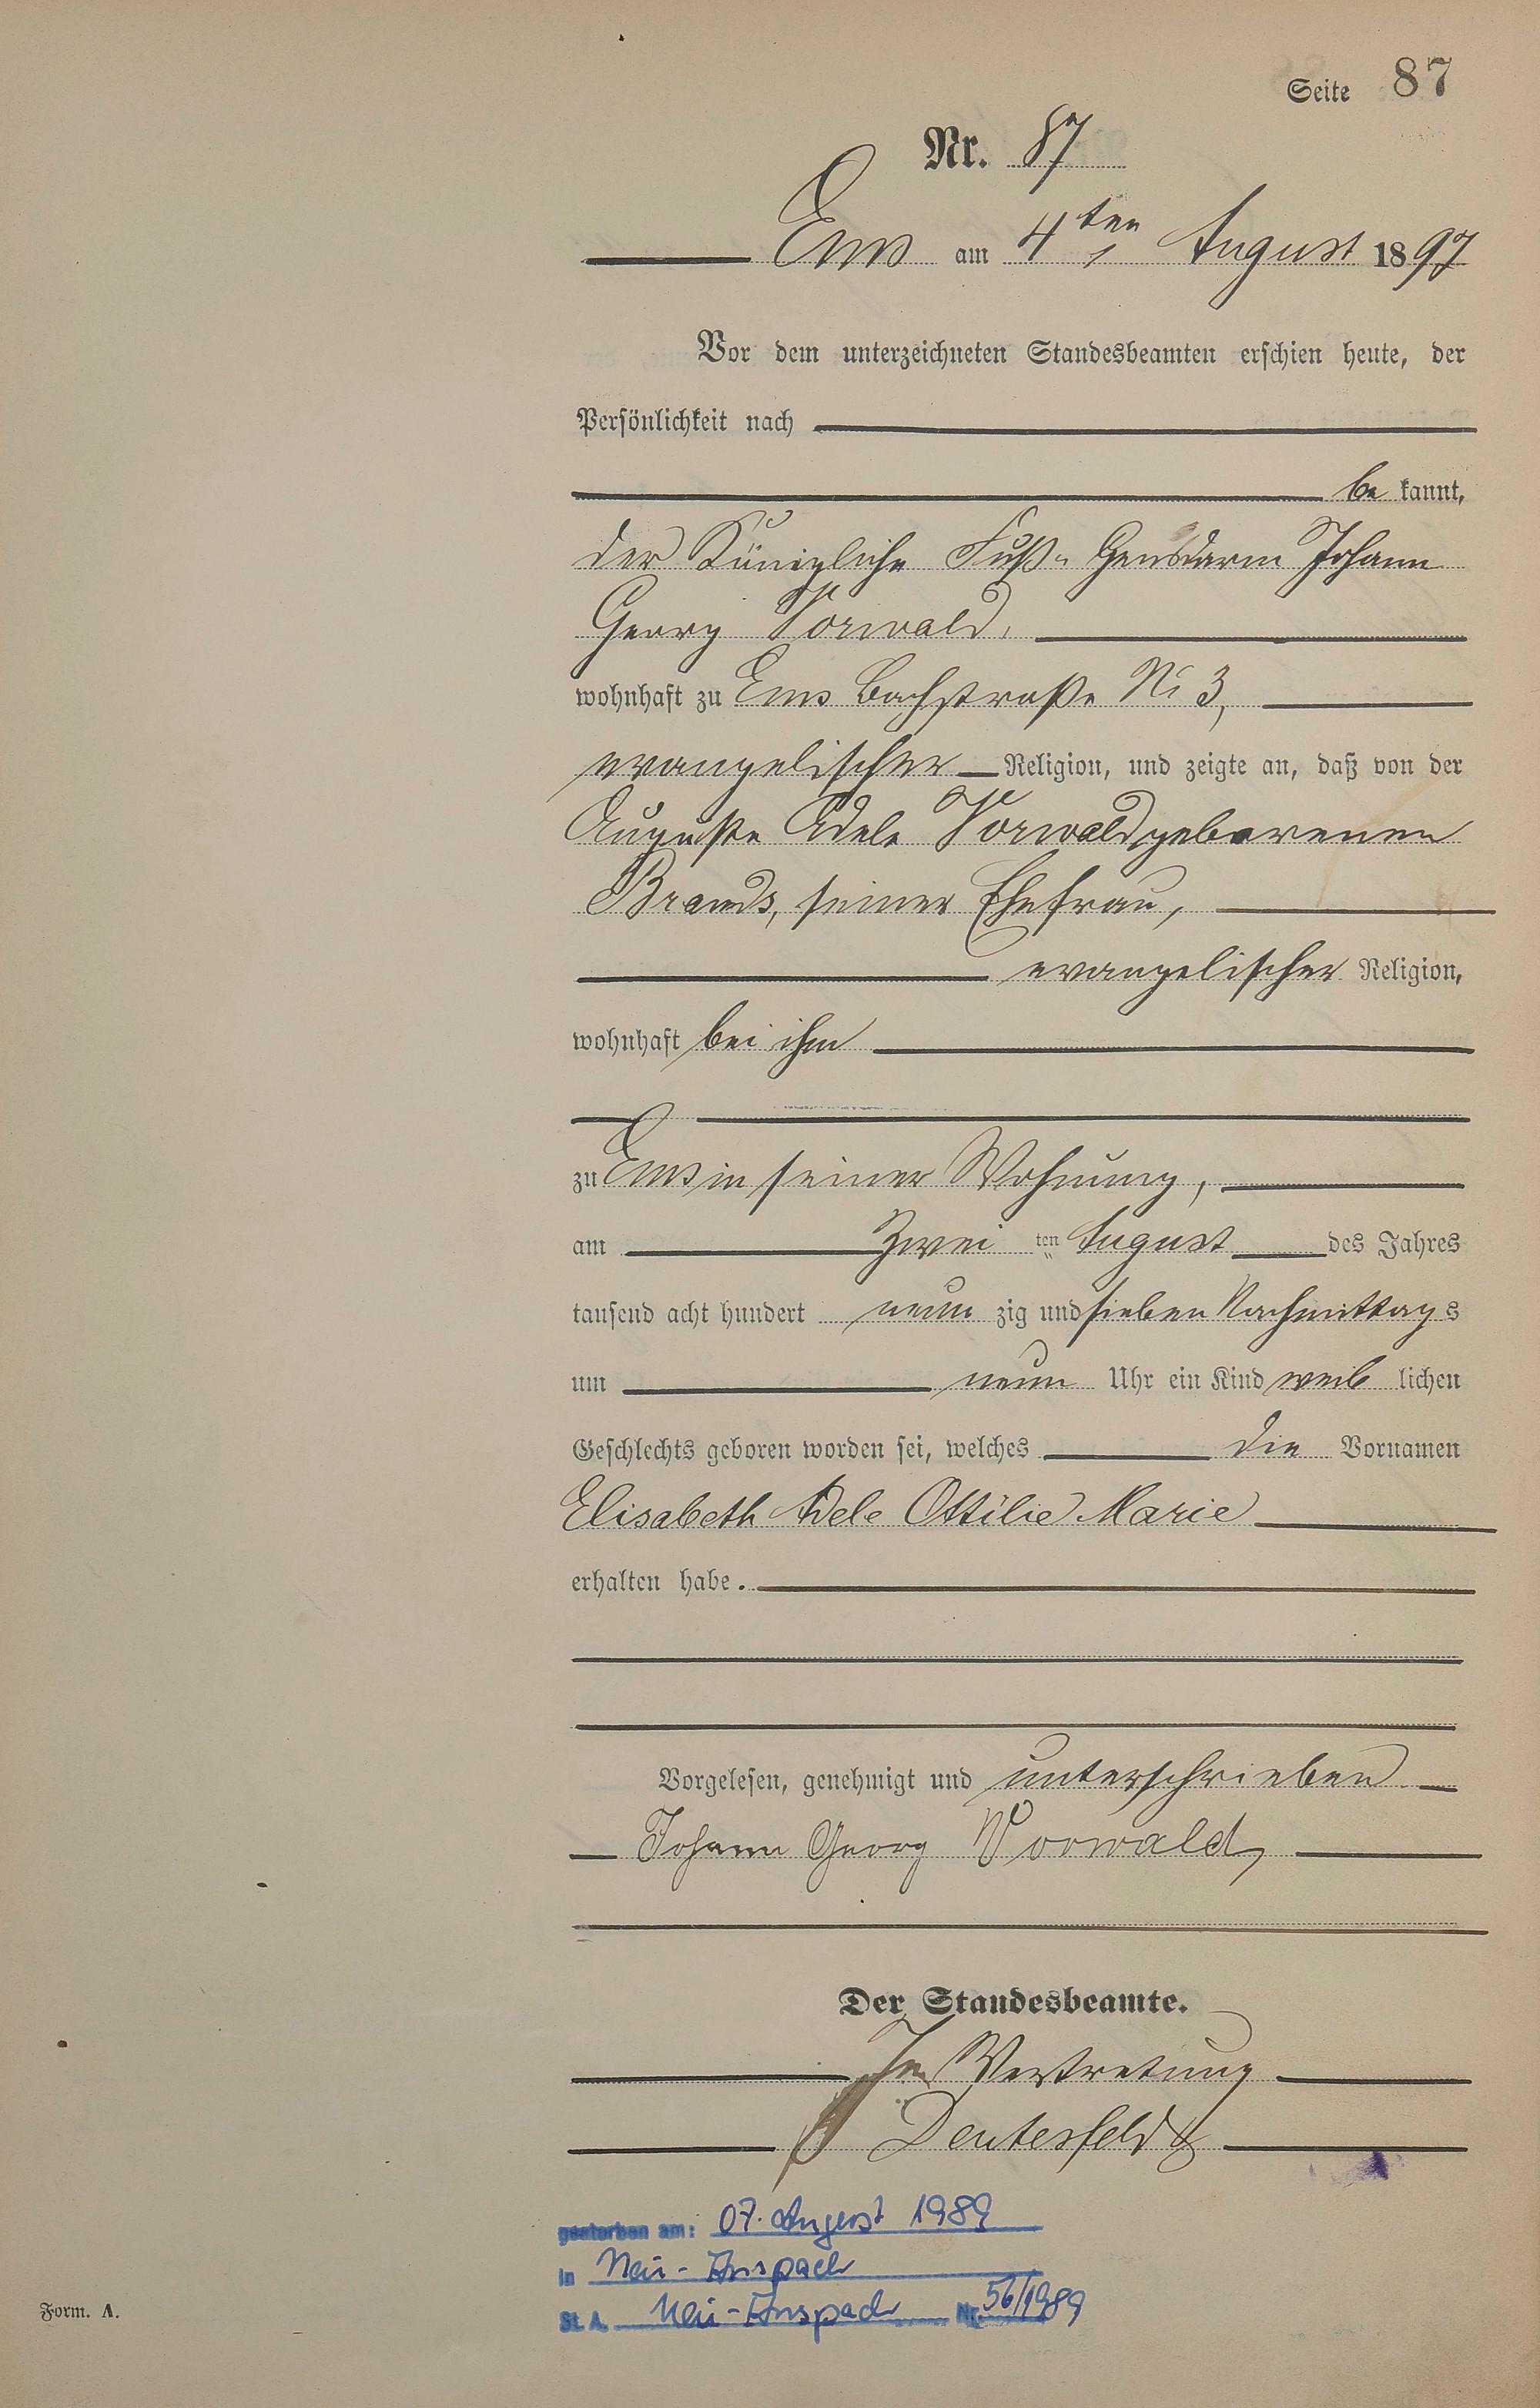 Seite 87
Nr. 87
Ems am 4ten August 1897
Vor dem unterzeichneten Standesbeamten erschien heute, der
Persönlichkeit nach
be kannt,
der Königliche Fuß-Gensdarm Johann
Georg Vorwald,
wohnhaft zu Ems Bachstraße No 3,
evangelischer Religion, und zeigte an, daß von der
Auguste Adele Vorwald geborenen
Brands, seiner Ehefrau,
evangelischer Religion,
wohnhaft bei ihm
zu Ems in seiner Wohnung,
am Zwei ten August des Jahres
tausend acht hundert neun zig und sieben Nachmittags
um neun Uhr ein Kind weib lichen
Geschlechts geboren worden sei, welches die Vornamen
Elisabeth Adele Ottilie Marie
erhalten habe.
Vorgelesen, genehmigt und unterschrieben
Johann Georg Vorwald
Der Standesbeamte.
In Vertretung
Deutesfeld
gestorben am: 07. August 1989
in Neu-Anspach
St. A. Neu-Anspach Nr. 56/1989
Form. A.